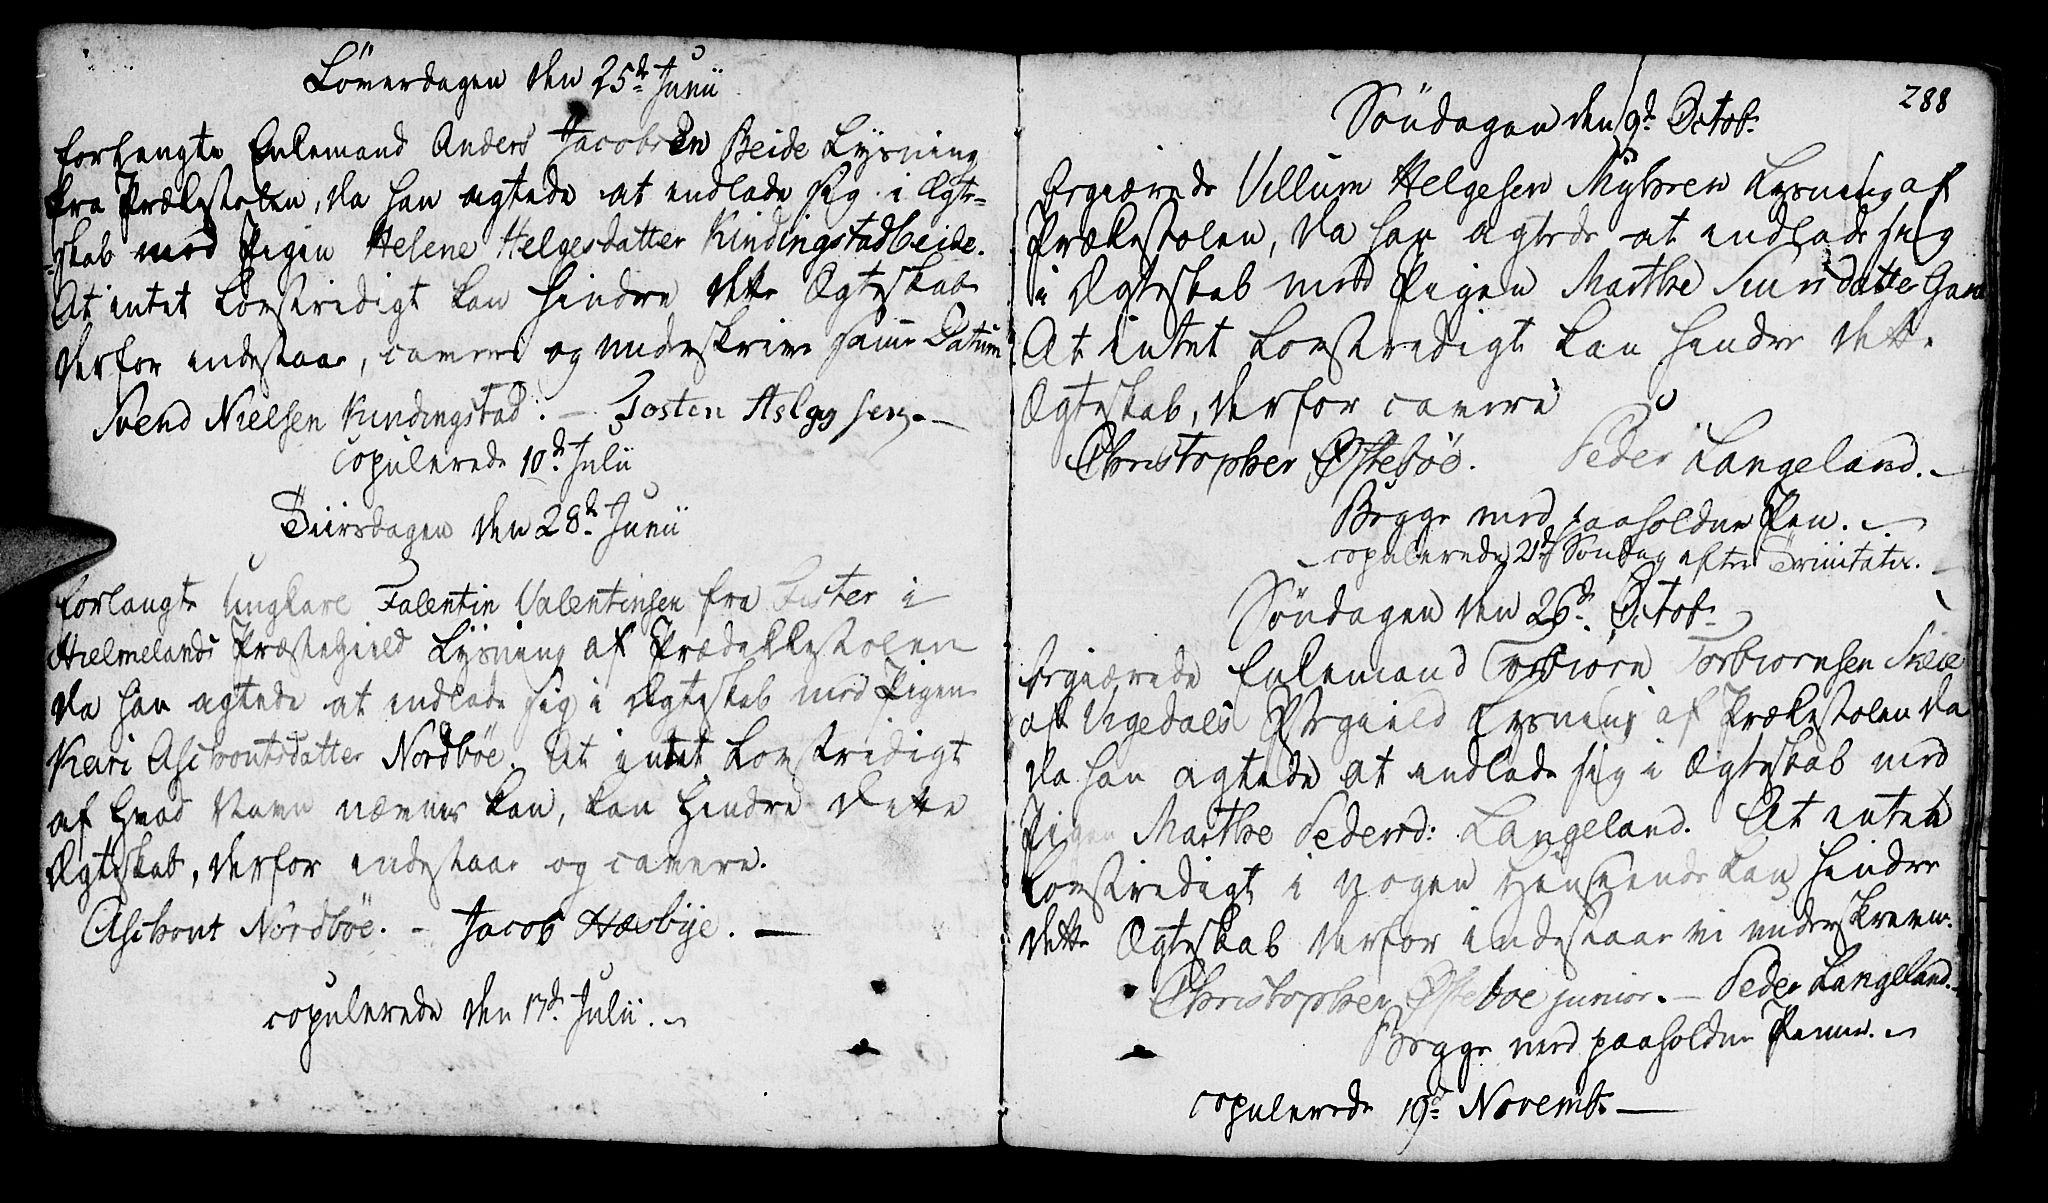 Löverdagen den 25d Junii
forlangte Enkemand Anders Jacobsen Beide Lysning
fra Prækestolen, da han agtede at indlade sig i Ægte=
=skab med Pigen Helene Helgesdatter Kindingstadbeide.
At intet Lovstridigt kan hindre dette Ægteskab
derfor indestaar, cavere og underskrive samme Datum
Svend Nielsen Kindingstad. - Tosten Aslagsen. -
copulerede 10d Julii
Tiirsdagen den 28d Junii
forlangte Ungkarl Falentin Valentinsen fra Fister i
Hielmelands Præstegield Lysning af Prædekkestolen
da han agtede at indlade sig i Ægteskab med Pigen
Kari Aschoutsdatter Nordböe. At intet Lovstridigt
af hvad Navn nævnes kan, kan hindre dette
Ægteskab, derfor indestaar og cavere.
Aschout Nordböe. - Jacob Hæsbye. -
copulerede den 17d Julii. -
288
Söndagen den 9d Octob.
begiærede Villum Helgesen Myhren Lysning af
Prækestolen, da han agtede at indlade sig
i Ægteskab med Pigen Marthe Siursdatter
At intet Lovstridigt kan hindre dette
Ægteskab, derfor cavere
Christopher Østeböe. Peder Langeland. -
Begge med paaholden Pen. -
copulerede 21d Söndag after Trinitatis. -
Söndagen den 26d Octob.
begiærede Enkemand Torbiörn Torbiornsen
af Vigedals Lysning af Prækestolen da
da han agtede at indlade sig i Ægteskab med
Pigen Marthe Pedersd: Langeland. At intet
Lovstridigt i nogen Henseende kan hindre
dette Ægteskab derfor indestaar vi underskrevne.
Christopher Østeboe junior. - Peder Langeland.
Begge med paaholden Penne. -
copulerede 19d Novemb. -